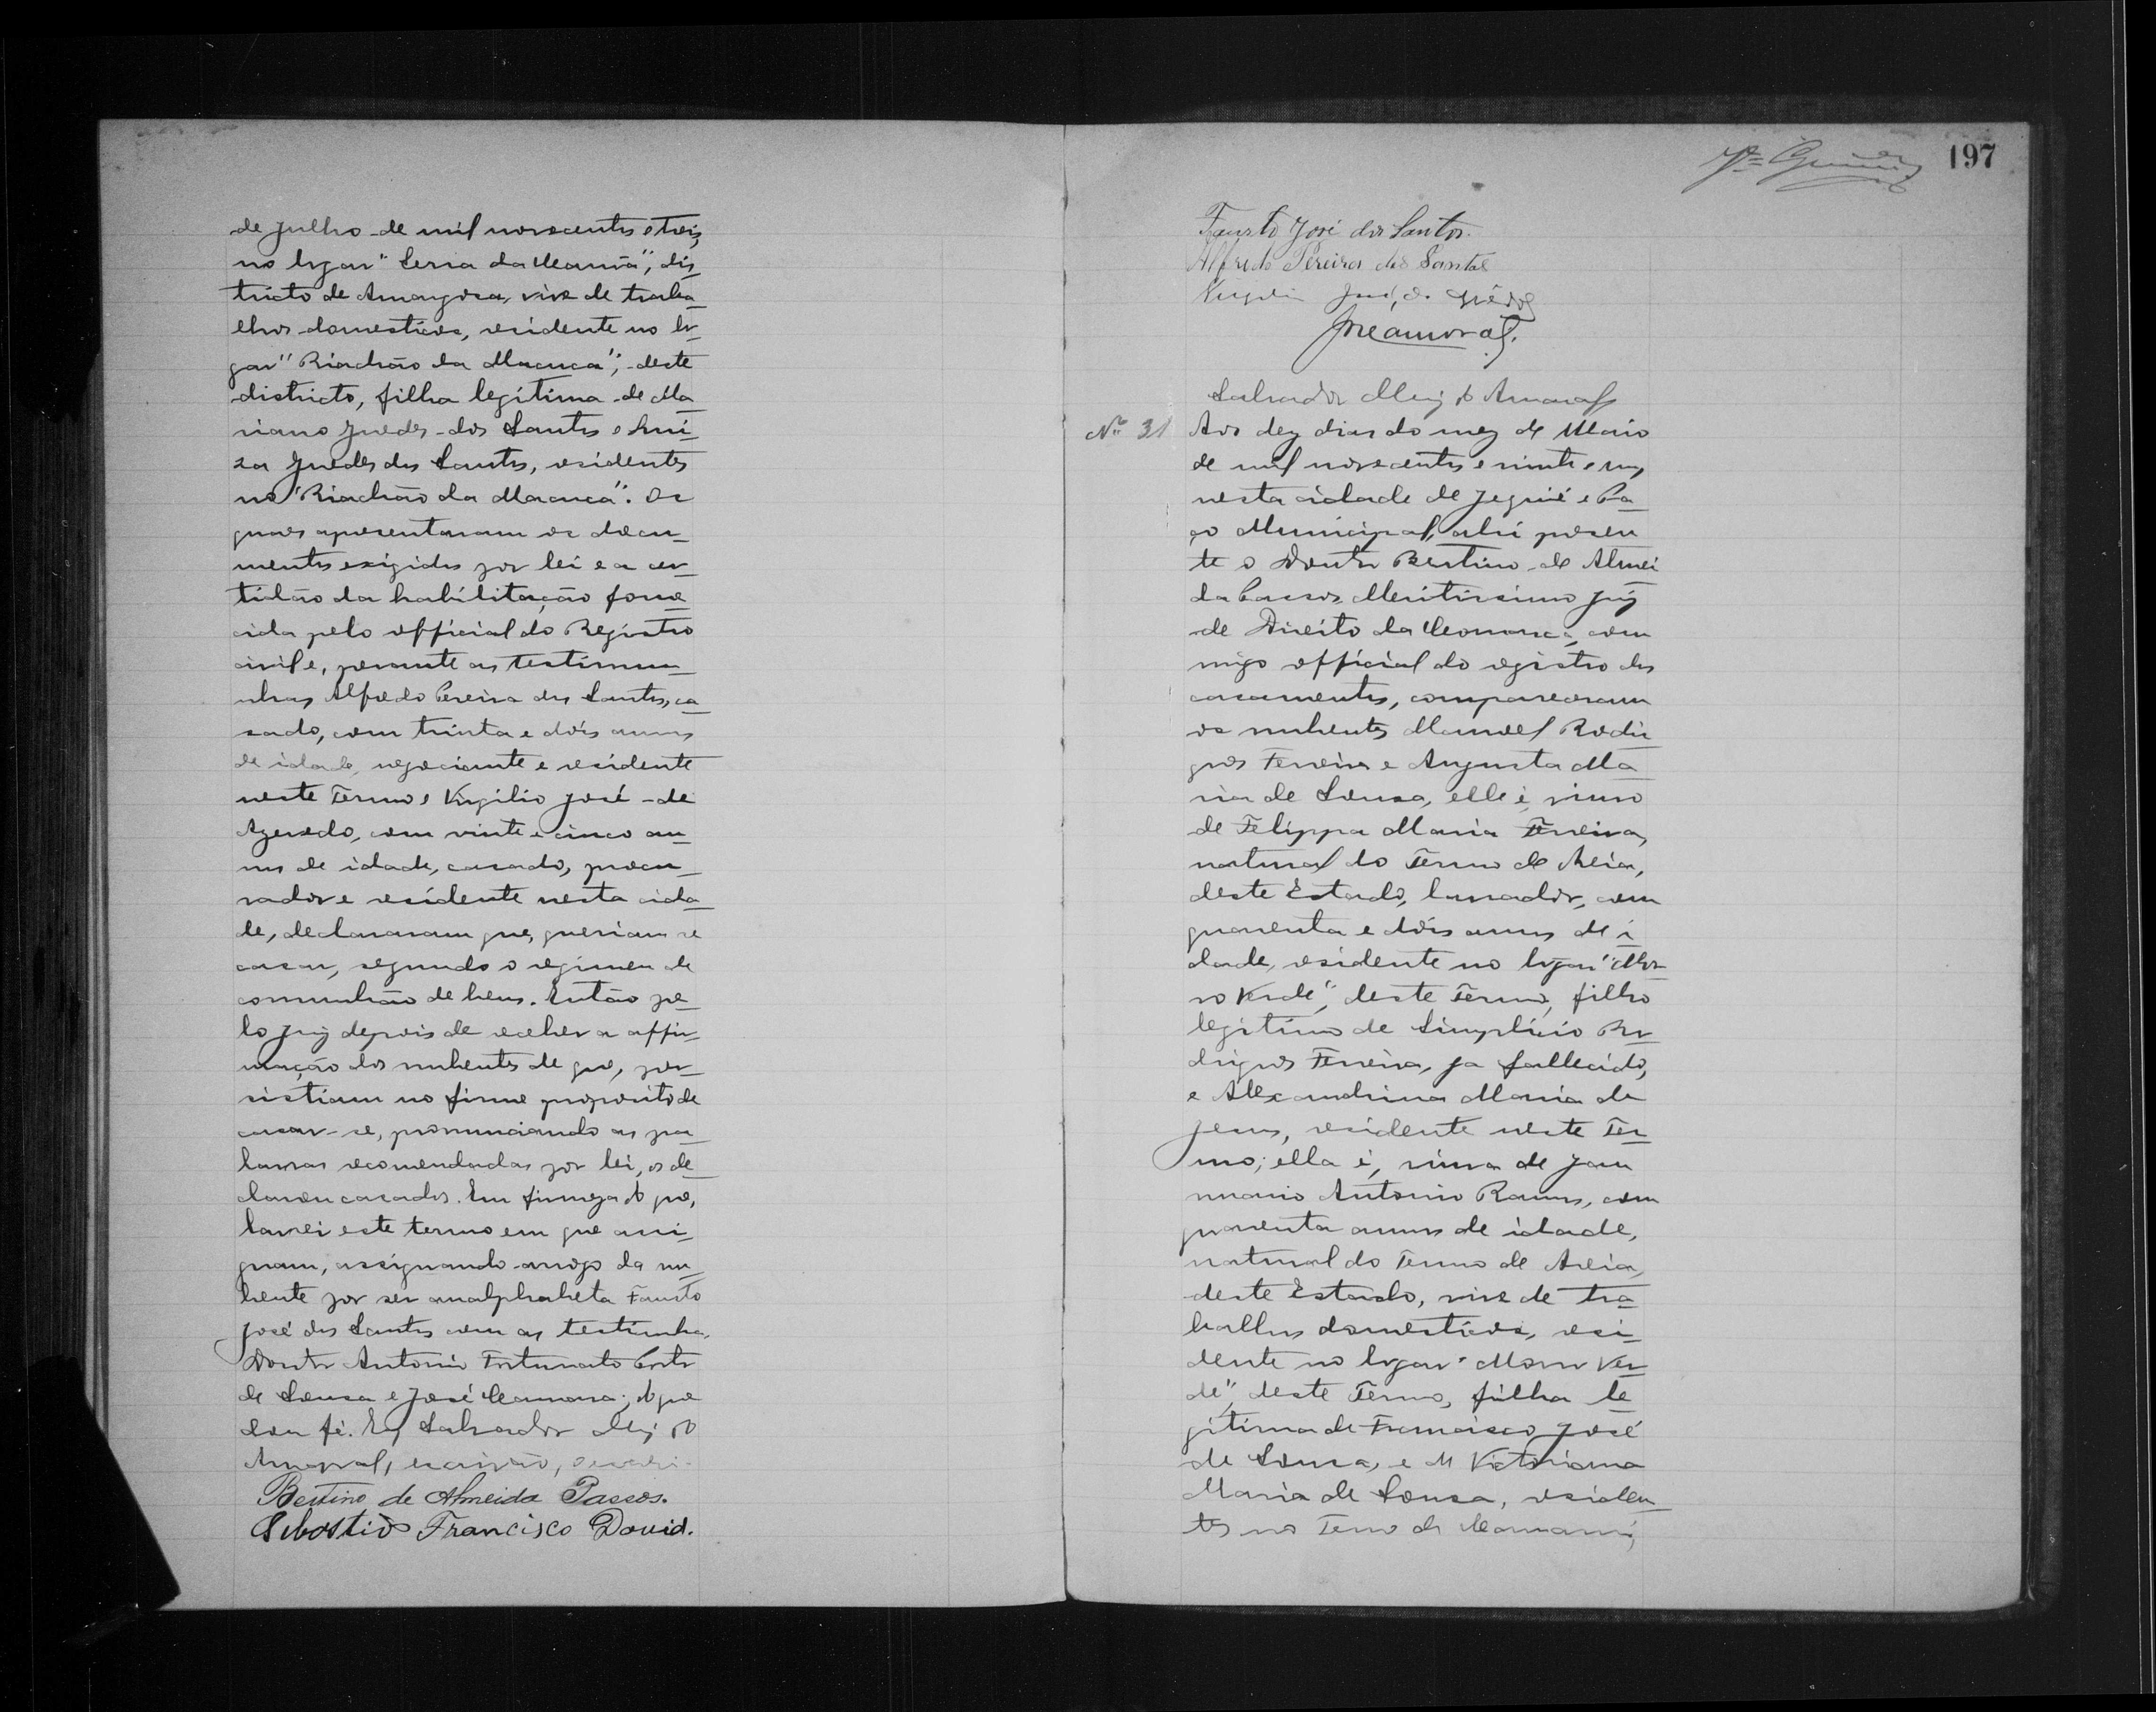 de Julho de mil novecentos e tres,
no lugar "Serra da", dis
tricto de Amargosa, vive de traba
lhos domesticos, residente no lu
gar "Riachão da Mucuca", deste
districto, filha legitima de Ma
riano Guedes dos Santos e Lui
za Guedes dos Santos, residentes
no "Riachão da Mucuca". Os
quaes apresentaram os docu
mentos exigidos por lei e a cer
tidão da habilitação forne
cida pelo official do Registro
civil e, perante as testimu
nhas Alfredo Pereira dos Santos, ca
sado, com trinta e dois annos
de idade, negociante e residente
neste Termo e Virgilio José de
Azevedo, com vinte e cinco an
nos de idade, casado, procu
rador e residente nesta cida
de, declararam que, queriam se
casar, segundo o regimen de
comunhão de bens. Então pe
lo Juiz depois de receber a affir
mação dos nubentes de que, per
sistiam no firme proposito de
casar-se, pronunciando as pa
lavras recomendadas por lei, os de
clarou casados. Em firmeza do que,
lavrei este termo em que assi
gnam, assignando arrogo da nu
bente por ser analphabeta Fausto
José dos Santos com as testimhas,
Doutor Antonio Fortunato
de Sousa e José; do que
dou fé. Eu Salvador do
Amaral, escrivão, escrevi.
Bertino de Almeida Passos.
Sebastião Francisco David.
197
Fausto José dos Santos.
Alfredo Pereira dos Santos
Virgilio José d.
Salvador do Amaral
Nº 31
Aos dez dias do mez de Maio
de mil novecentos e vinte e um,
nesta cidade de Jequié e Pa
ço Municipal, ahi presen
te o Doutor Bertino de Almei
da Passos, Meritissimo Juiz
de Direito da Comarca, com
migo official do registro dos
casamentos, compareceram
os nubentes Manoel Rodri
gues Ferreira e Augusta Ma
ria de Sousa, elle é, viuvo
de Felippa Maria Ferreira,
natural do Termo de Areia,
deste Estado, lavrador, com
quarenta e dois annos de i
dade, residente no lugar "Mor
ro Verde", deste Termo, filho
legitimo de Simplicio Ro
drigues Ferreira, ja fallecido,
e Alexandrina Maria de
Jesus, residente neste Ter
mo; ella é, viuva de Jan
nuario Antonio Ramos, com
quarenta annos de idade,
natural do Termo de Areia,
deste Estado, vive de tra
balhos domesticos, resi
dente no lugar "Morro Ver
de", deste Termo, filha le
gitima de Francisco José
de Sousa, e D Victoriana
Maria de Sousa, residen
tes no Termo de